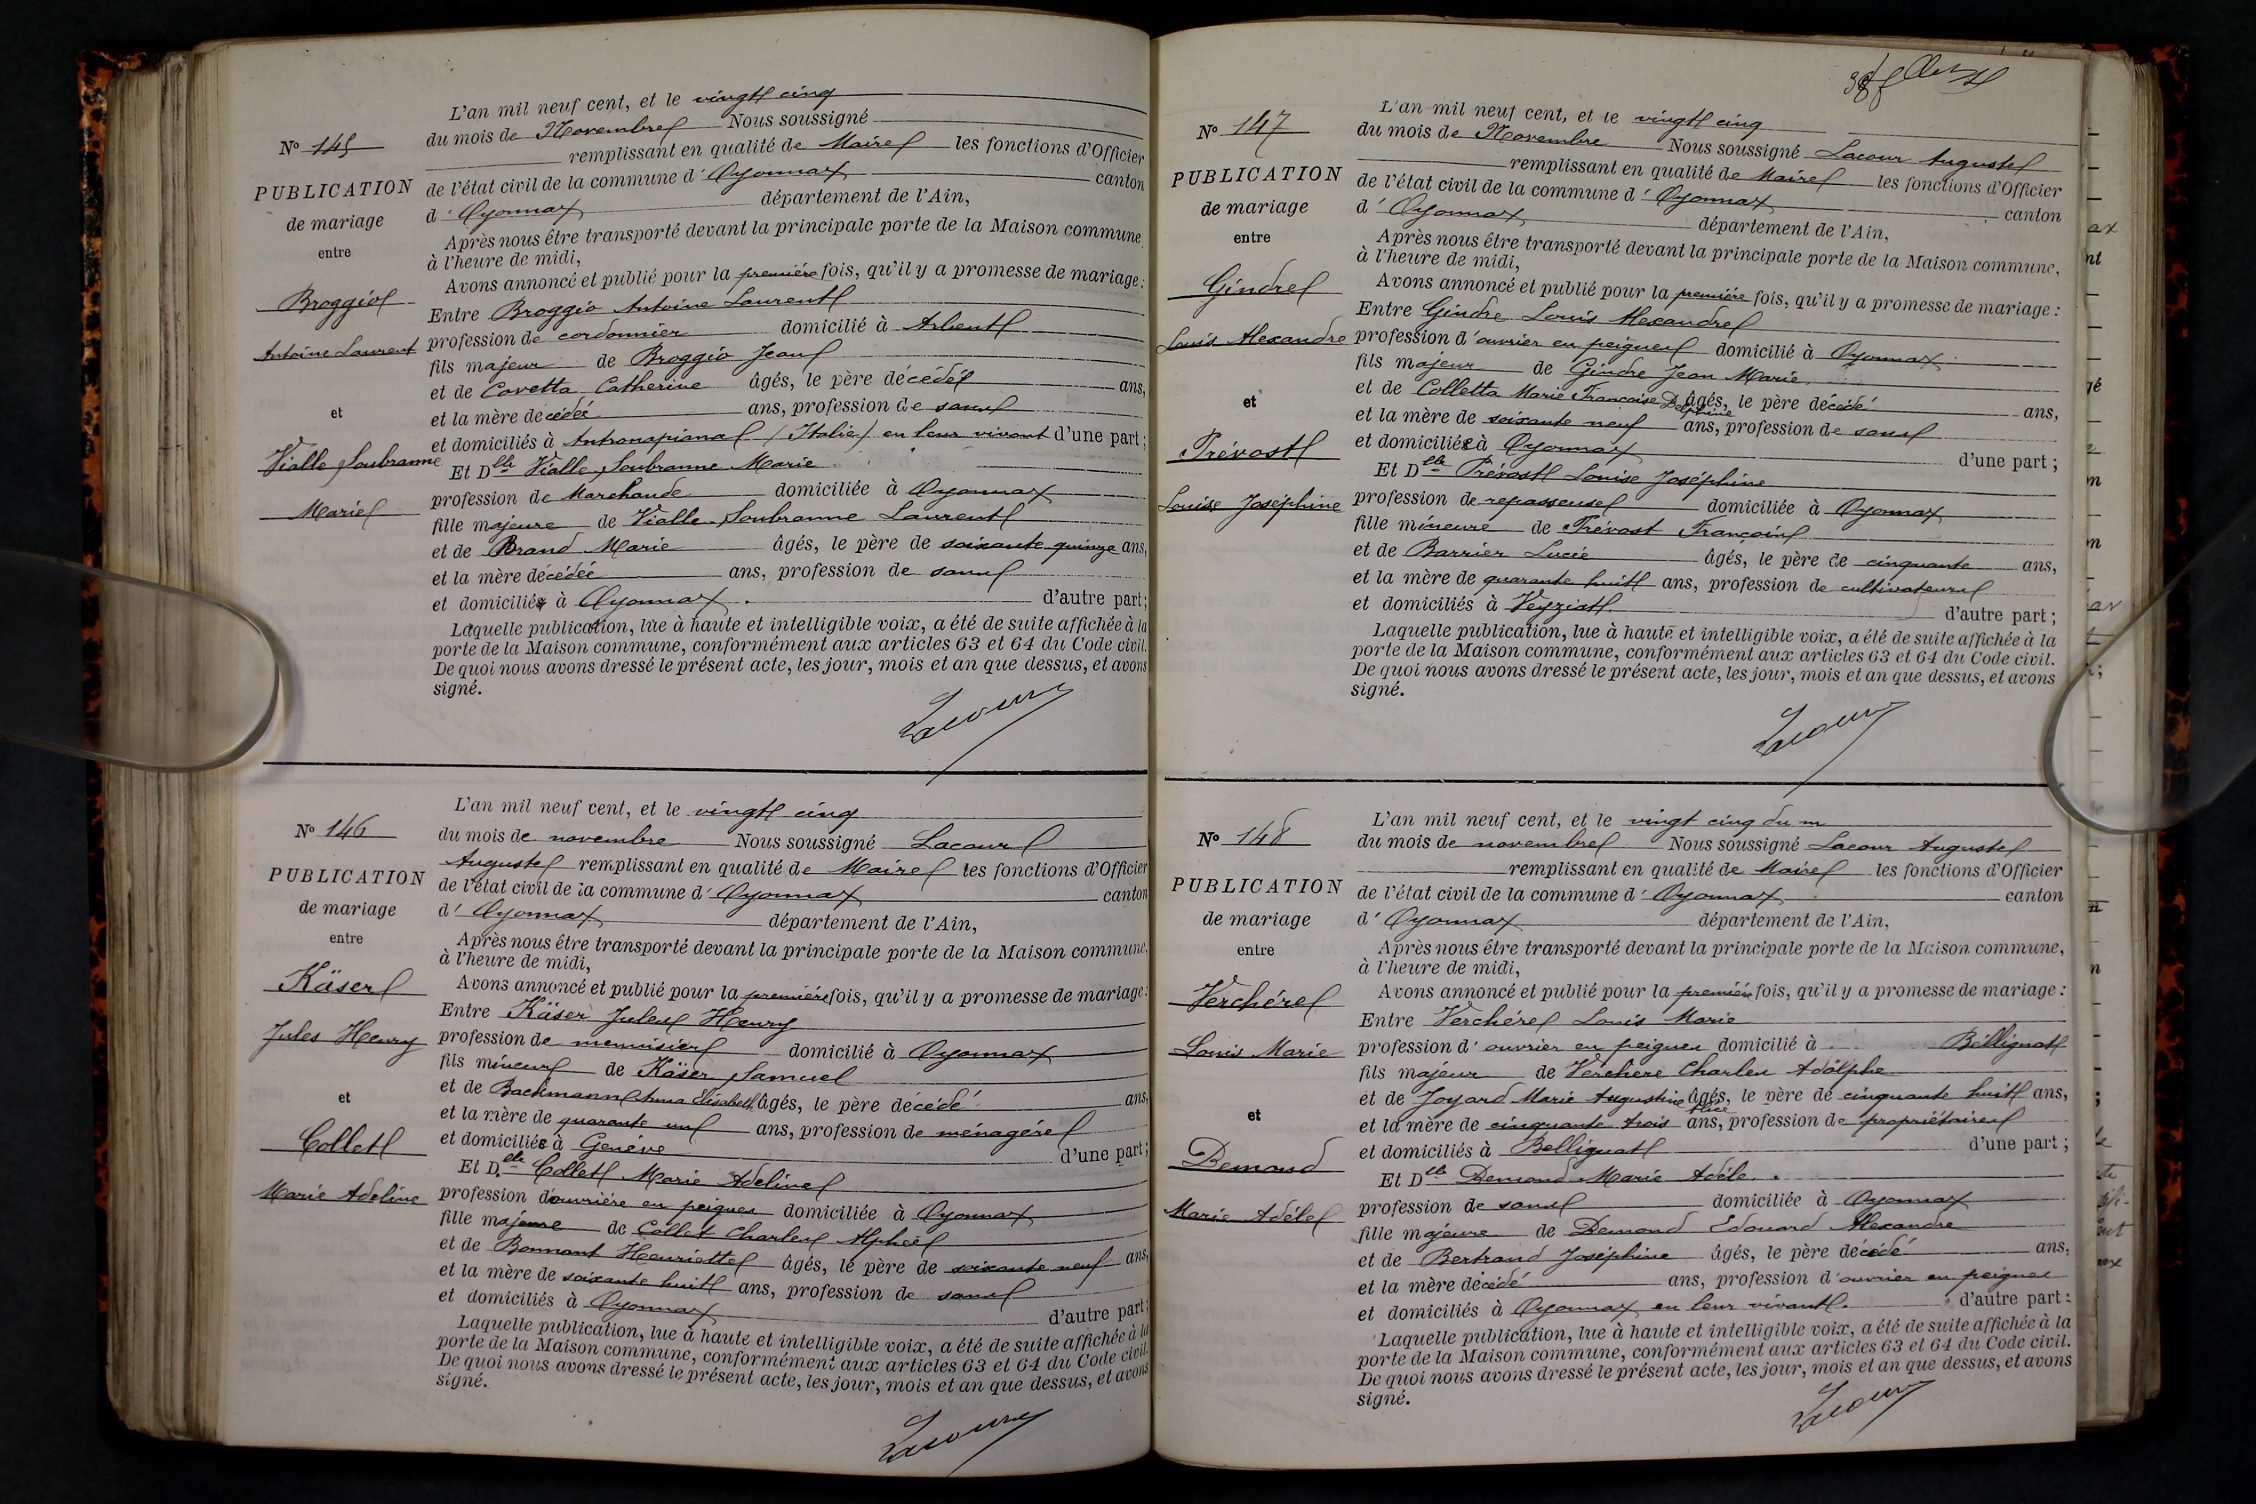 L'an mil neuf cent, et le vingt cinq
du mois de Novembre Nous soussigné
remplissant en qualité de Maire les fonctions d'Officier
de l'état civil de la commune d'Oyonnax canton
d'Oyonnax département de l'Ain,
Après nous être transporté devant la principale porte de la Maison commune
à l'heure de midi,
Avons annoncé et publié pour la première fois, qu'il y a promesse de mariage:
Entre Broggio Antoine Laurent
profession de cordonnier domicilié à Arbent
fils majeur de Broggio Jean
et de Covetta Catherine âgés, le père décédé ans,
et la mère décédée ans, profession de sans
et domiciliés à Antronapiana (Italie) en leur vivant d'une part;
Et Dlle Vialle Soubranne Marie
profession de Marchande domiciliée à Oyonnax
fille majeure de Vialle-Soubranne Laurent
et de Brand Marie âgés, le père de soixante quinze ans,
et la mère décédée ans, profession de sans
et domicilié à Oyonnax d'autre part;
Laquelle publication, lue à haute et intelligible voix, a été de suite affichée à la
porte de la Maison commune, conformément aux articles 63 et 64 du Code civil.
De quoi nous avons dressé le présent acte, les jour, mois et an que dessus, et avons
signé.
Lacour
No 145
PUBLICATION
de mariage
entre
Broggio
Antoine Laurent
et
Vialle Soubranne
Marie
No 146
PUBLICATION
de mariage
entre
Käser
Jules Henry
et
Collet
Marie Adeline
L'an mil neuf cent, et le vingt cinq
du mois de novembre Nous soussigné Lacour
Auguste remplissant en qualité de Maire les fonctions d'Officier
de l'état civil de la commune d'Oyonnax canton
d'Oyonnax département de l'Ain,
Après nous être transporté devant la principale porte de la Maison commune,
à l'heure de midi,
Avons annoncé et publié pour la première fois, qu'il y a promesse de mariage:
Entre Käser Jules Henry
profession de menuisier domicilié à Oyonnax
fils mineur de Käser Samuel
et de Backmann Anna Elisabeth âgés, le père décédé ans,
et la mère de quarante un ans, profession de ménagère
et domiciliée à Genève d'une part;
Et Dlle Collet Marie Adeline
profession d'ouvrière en peignes domiciliée à Oyonnax
fille majeure de Collet Charles Alphée
et de Bonnant Henriette âgés, le père de soixante neuf ans,
et la mère de soixante huit ans, profession de sans
et domiciliés à Oyonnax d'autre part;
Laquelle publication, lue à haute et intelligible voix, a été de suite affichée à la
porte de la Maison commune, conformément aux articles 63 et 64 du Code civil.
De quoi nous avons dressé le présent acte, les jour, mois et an que dessus, et avons
signé.
Lacour
No 147
PUBLICATION
de mariage
entre
Gindre
Louis Alexandre
et
Prévost
Louise Joséphine
L'an mil neuf cent, et le vingt cinq
du mois de Novembre Nous soussigné Lacour Auguste
remplissant en qualité de Maire les fonctions d'Officier
de l'état civil de la commune d'Oyonnax canton
d'Oyonnax département de l'Ain,
Après nous être transporté devant la principale porte de la Maison commune,
à l'heure de midi,
Avons annoncé et publié pour la première fois, qu'il y a promesse de mariage:
Entre Gindre Louis Alexandre
profession d'ouvrier en peignes domicilié à Oyonnax
fils majeur de Gindre Jean Marie
et de Colletta Marie Françoise Delphine âgés, le père décédé ans,
et la mère de soixante neuf ans, profession de sans
et domiciliée à Oyonnax d'une part;
Et Dlle Prévost Louise Joséphine
profession de repasseuse domiciliée à Oyonnax
fille mineure de Prévost François
et de Barrier Lucie âgés, le père de cinquante ans,
et la mère de quarante huit ans, profession de cultivateurs
et domiciliés à Veyziat d'autre part;
Laquelle publication, lue à haute et intelligible voix, a été de suite affichée à la
porte de la Maison commune, conformément aux articles 63 et 64 du Code civil.
De quoi nous avons dressé le présent acte, les jour, mois et an que dessus, et avons
signé.
Lacour
No 148
PUBLICATION
de mariage
entre
Verchère
Louis Marie
et
Demond
Marie Adèle
L'an mil neuf cent, et le vingt cinq du m
du mois de novembre Nous soussigné Lacour Auguste
remplissant en qualité de Maire les fonctions d'Officier
de l'état civil de la commune d'Oyonnax canton
d'Oyonnax département de l'Ain,
Après nous être transporté devant la principale porte de la Maison commune,
à l'heure de midi,
Avons annoncé et publié pour la première fois, qu'il y a promesse de mariage:
Entre Verchère Louis Marie
profession d'ouvrier en peignes domicilié à Bellignat
fils majeur de Verchère Charles Adolphe
et de Joyard Marie Augustine âgés, le père de cinquante huit ans,
et la mère de cinquante trois ans, profession de propriétaires
et domiciliés à Bellignat d'une part;
Et Dlle Demond Marie Adèle
profession de sans domiciliée à Oyonnax
fille majeure de Demond Edouard Alexandre
et de Bertrand Joséphine âgés, le père décédé ans,
et la mère décédé ans, profession d'ouvrier en peignes
et domiciliés à Oyonnax en leur vivant. d'autre part:
Laquelle publication, lue à haute et intelligible voix, a été de suite affichée à la
porte de la Maison commune, conformément aux articles 63 et 64 du Code civil.
De quoi nous avons dressé le présent acte, les jour, mois et an que dessus, et avons
signé.
Lacour